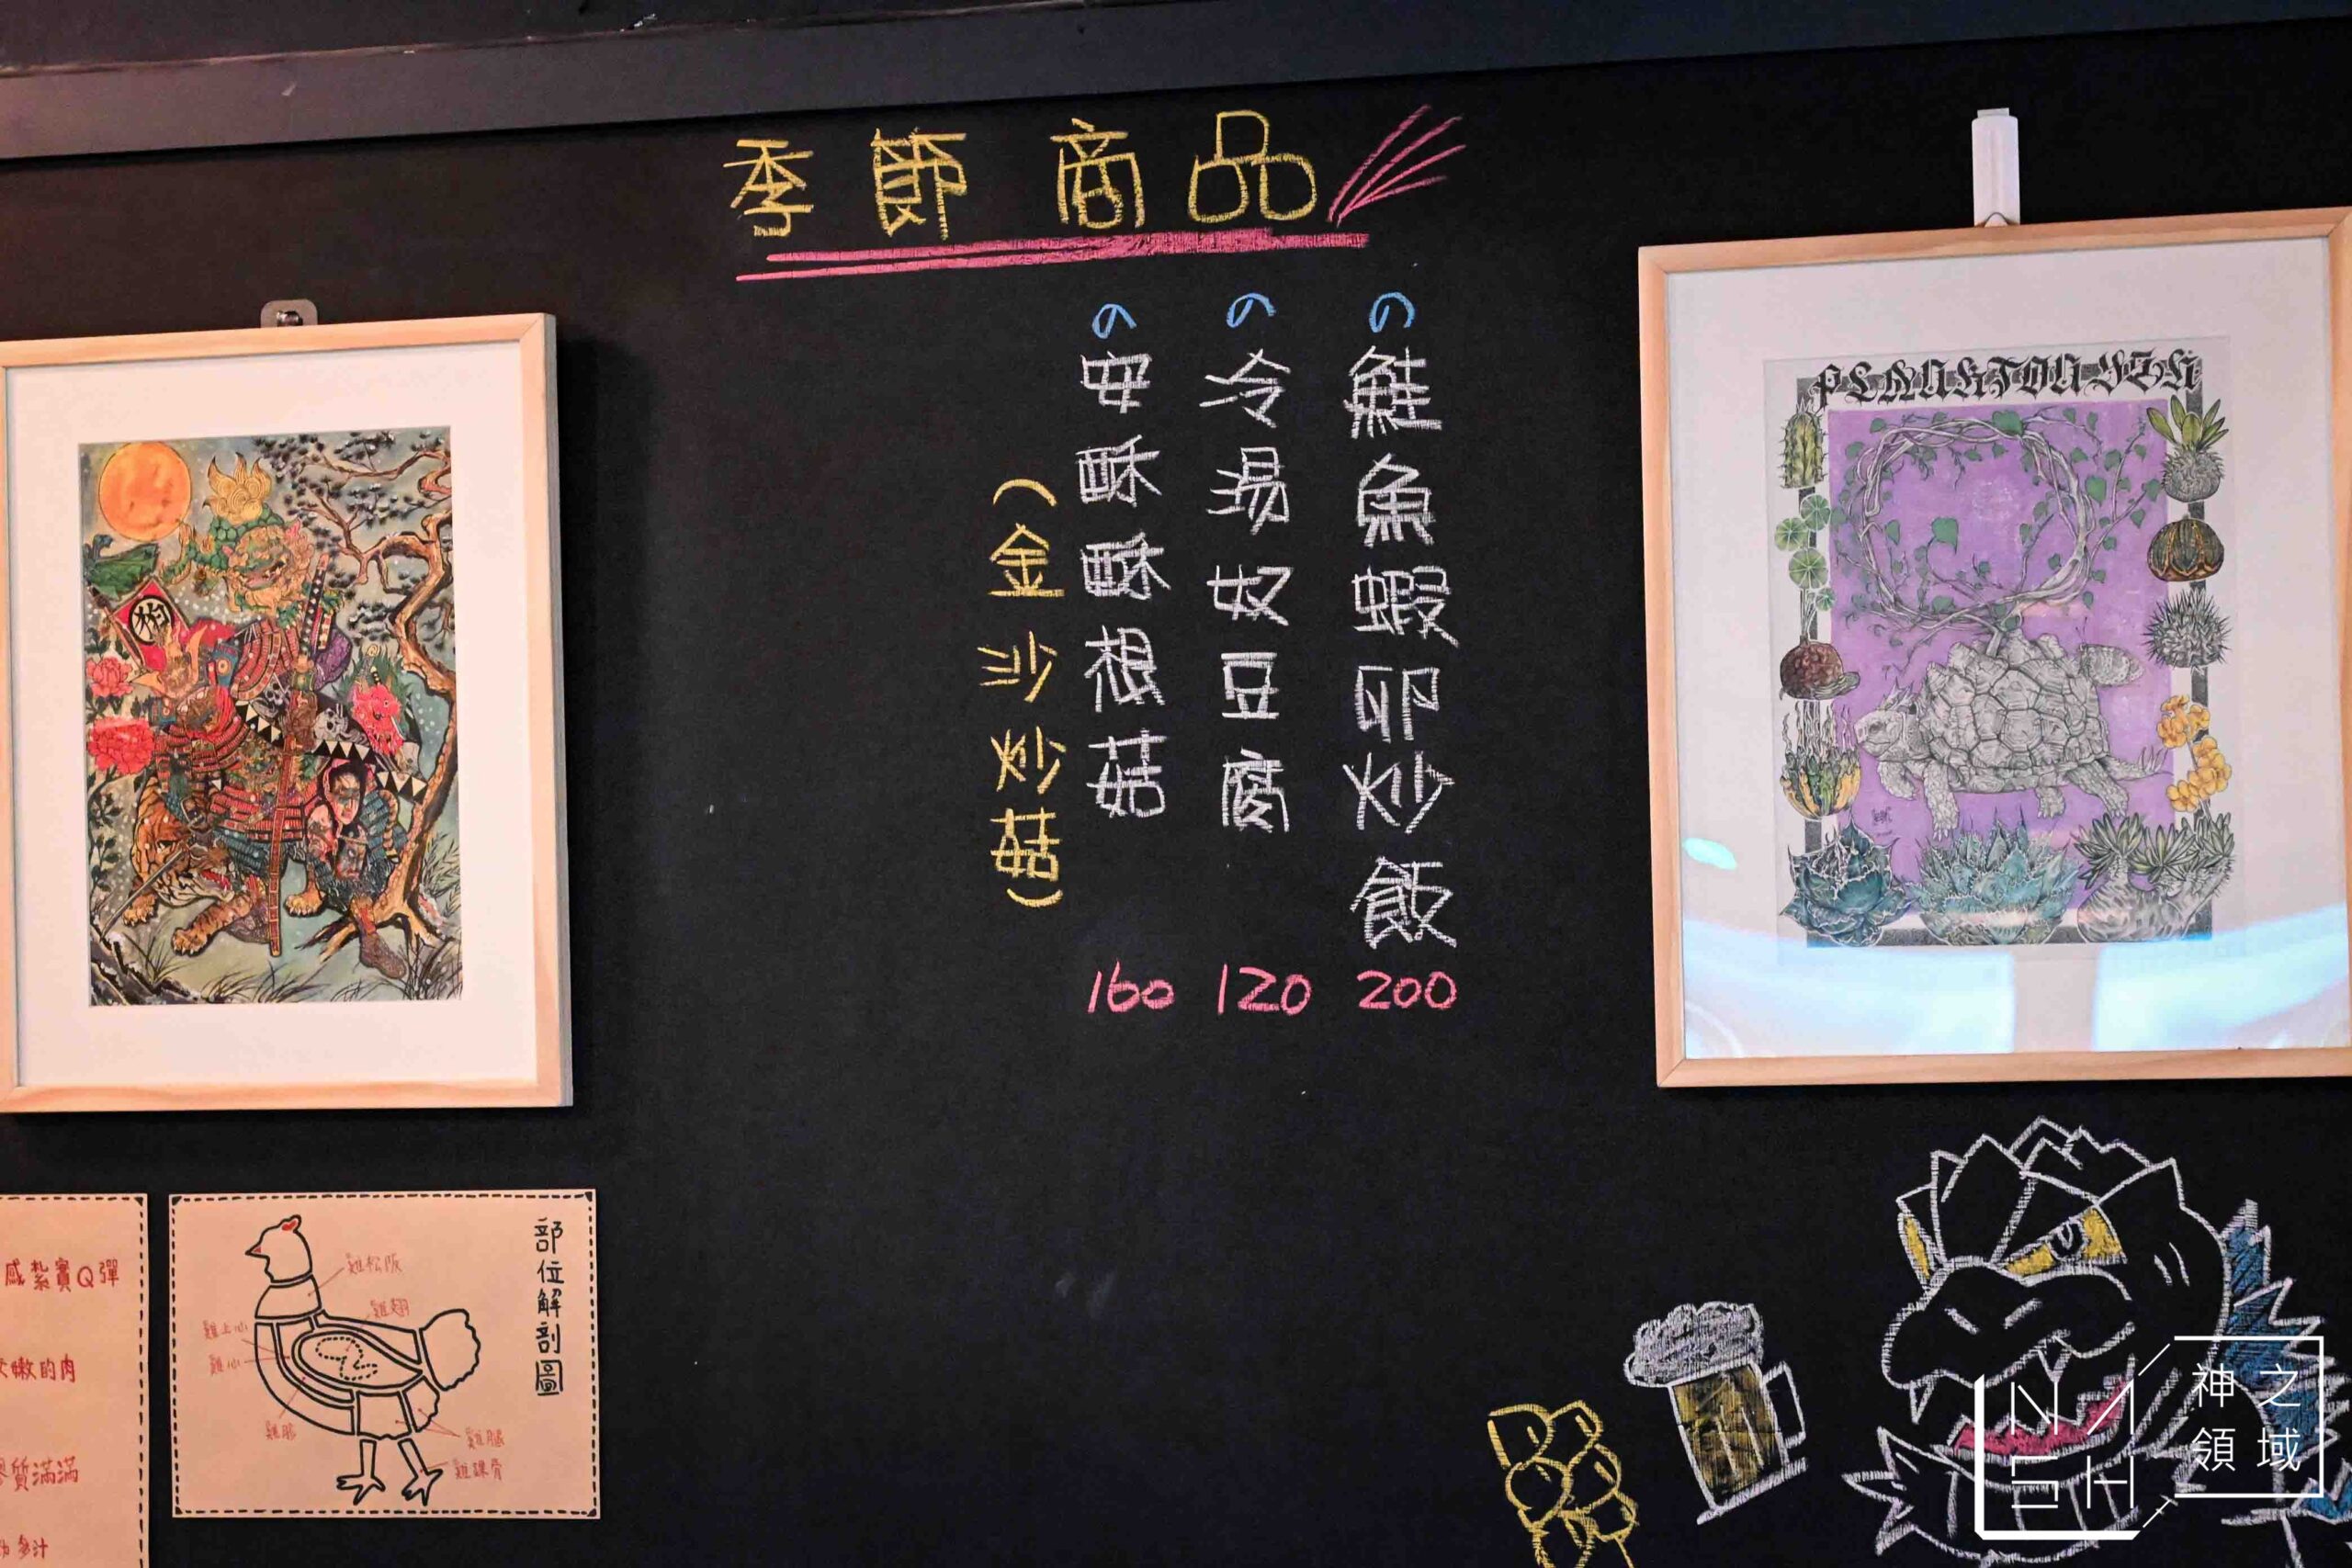 季節商品
の鮭魚蝦卵炒飯 200
の冷湯奴豆腐 120
の安酥酥根菇 160
(金沙炒菇)
PLANKTON YZH
部位解剖圖
雞松阪
雞翅
雞上心
雞心
雞腿
雞踝骨
感紮實Q彈
嫩的肉
質滿滿
多汁
NASH
神之領域